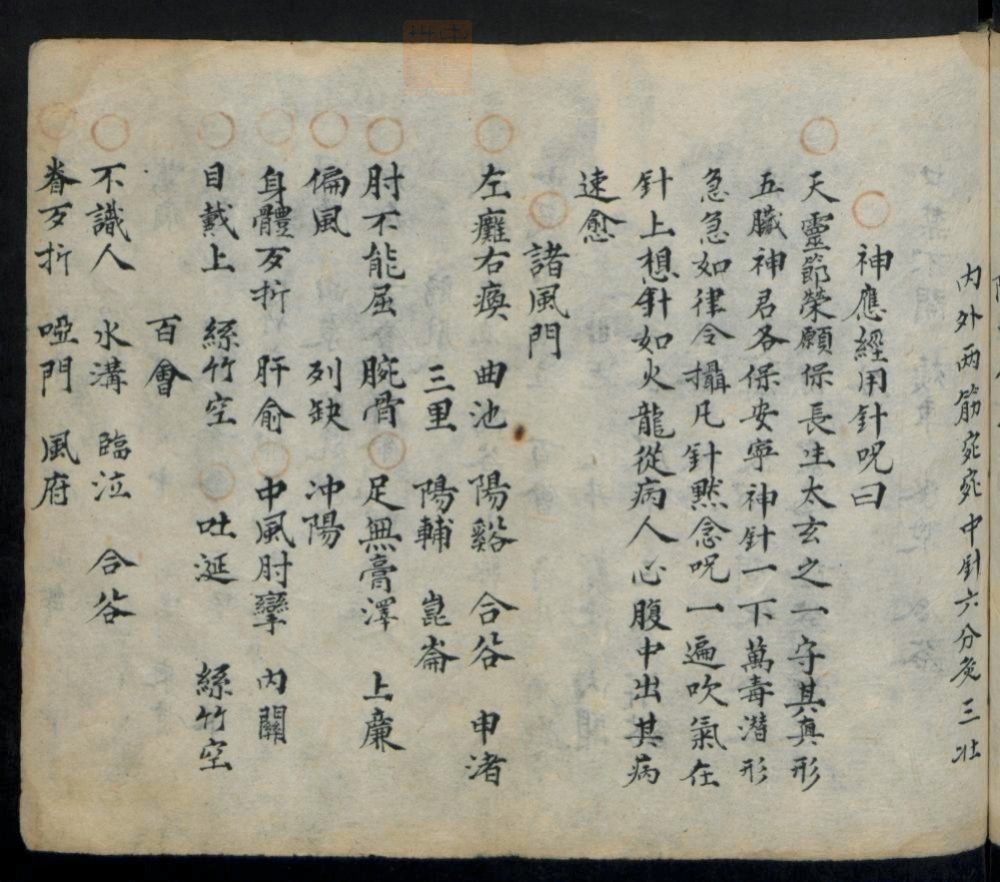 内外两筋宛宛中針六分灸三壯
神應經用針呪曰
天靈節榮願保長生太玄之一守其真形
五臟神君各保安寧神針一下萬毒潜形
急急如律令攝凡針黙念呪一遍吹氣在
針上想針如火龍從病人心腹中出其病
速愈
諸風門
左癱右瘓 曲池 陽谿 合谷 申渚
三里 陽輔 崑崙
肘不能屈 腕骨 足無膏澤 上廉
偏風 列缺 冲陽
身體歹折 肝俞 中風肘攣 内關
目戴上 絲竹空 吐涎 絲竹空
百會
不識人 水溝 臨泣 合谷
脊歹折 啞門 風府